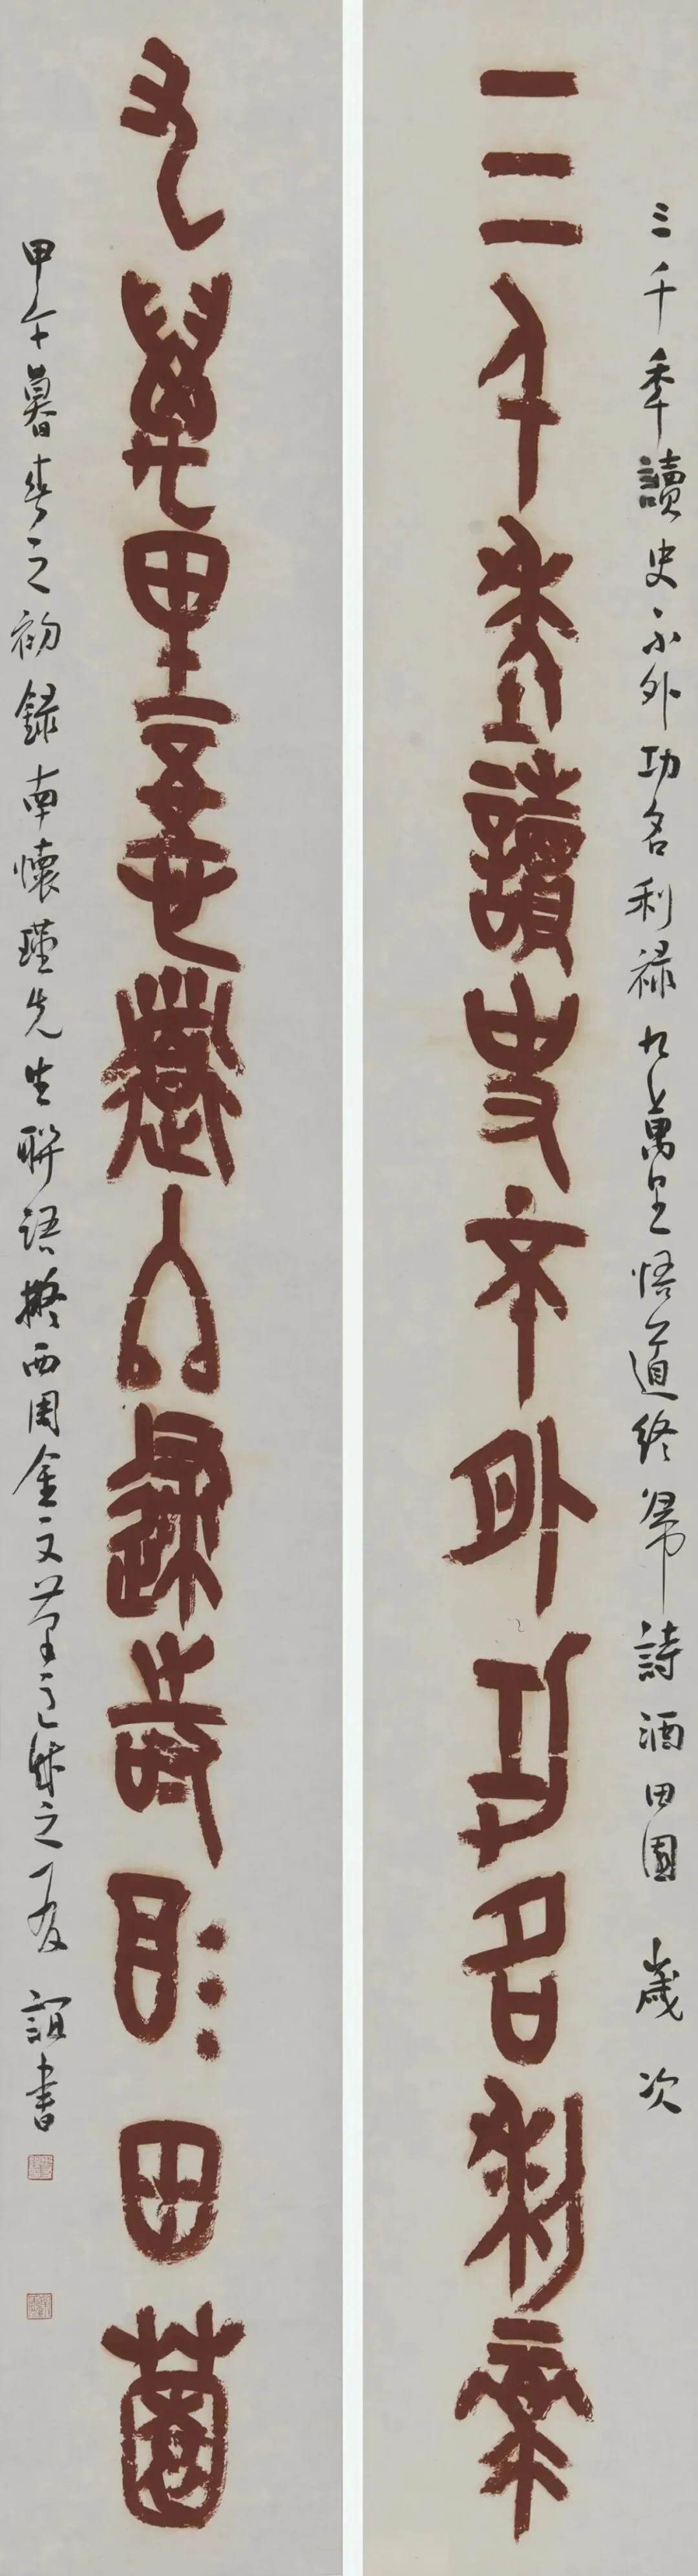 三千年讀史不外功名利祿九萬里悟道終歸詩酒田園 歲次
三千年讀史不外功名利祿
九萬里悟道終歸詩酒田園
甲午暮春之初錄南懷瑾先生聯語擬西周金文筆意成之 誼書